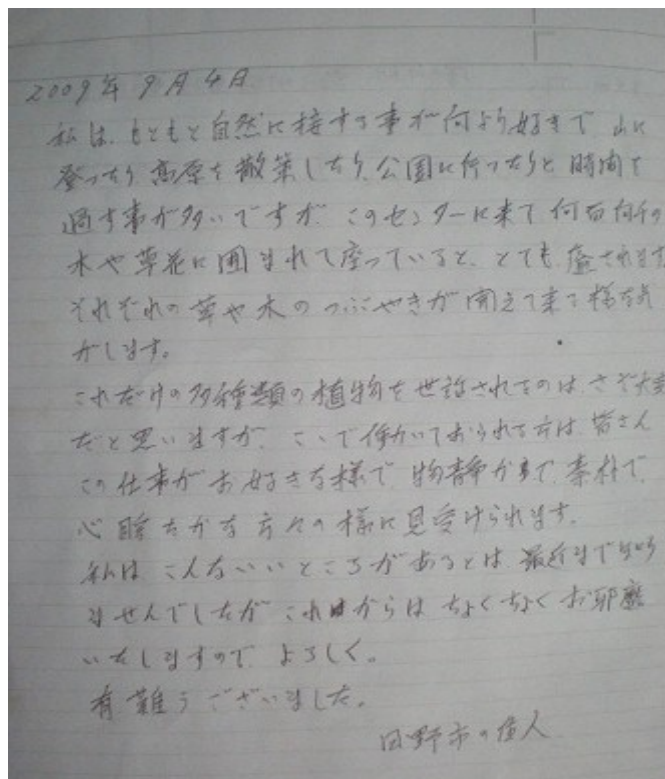 2009年9月4日
私は、もともと自然に接する事が何より好きで 山に
登ったり 高原を散策したり、公園に行ったりと 時間を
過す事が多いですが、このセンターに来て 何百何千の
木や草花に囲まれて座っていると、とても癒されます
それぞれの草や木のつぶやきが聞えて来る様な気
がします。
これだけの多種類の植物を世話されるのは、さぞ大変
だと思いますが、ここで働いておられる方は 皆さん
この仕事がお好きな様で、物静かで、素朴で、
心豊かな方々の様に見受けられます。
私は こんないいところがあるとは 最近まで知り
ませんでしたが これからは ちょくちょく お邪魔
いたしますので よろしく。
有難うございました。
日野市の住人